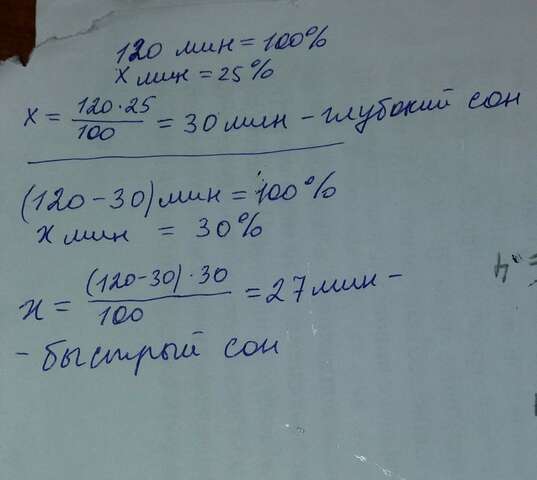 120 мин = 100%
x мин = 25%
x = 120·25/100 = 30 мин – глубокий сон
(120 – 30) мин = 100%
x мин = 30%
x = (120-30)·30/100 = 27 мин –
– быстрый сон